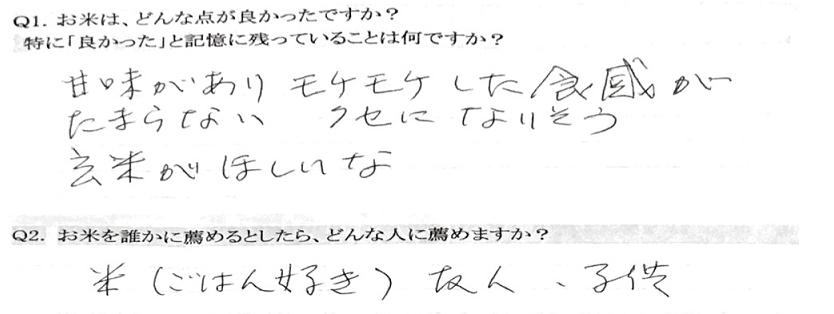 Q1. お米は、どんな点が良かったですか？
特に「良かった」と記憶に残っていることは何ですか？
甘味があり モケモケした食感が
たまらない クセになりそう
玄米がほしいな
Q2. お米を誰かに薦めるとしたら、どんな人に薦めますか？
米（ごはん好き）友人、子供